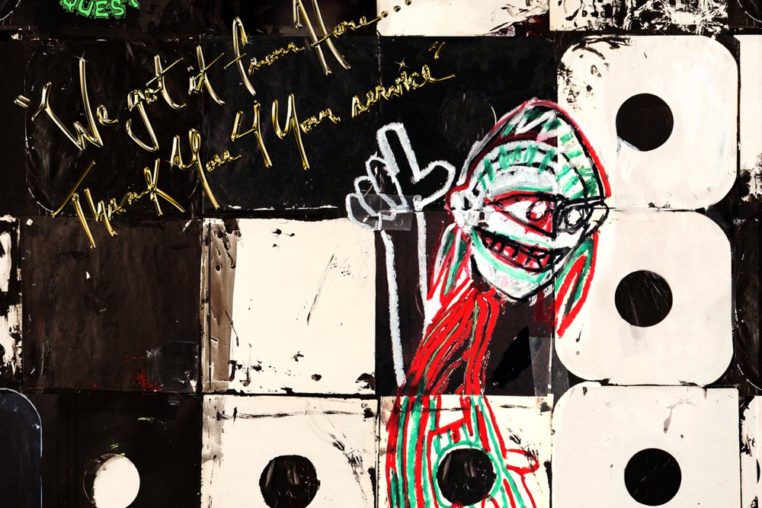 QUEST
"We got it from Here...
Thank You 4 Your service"